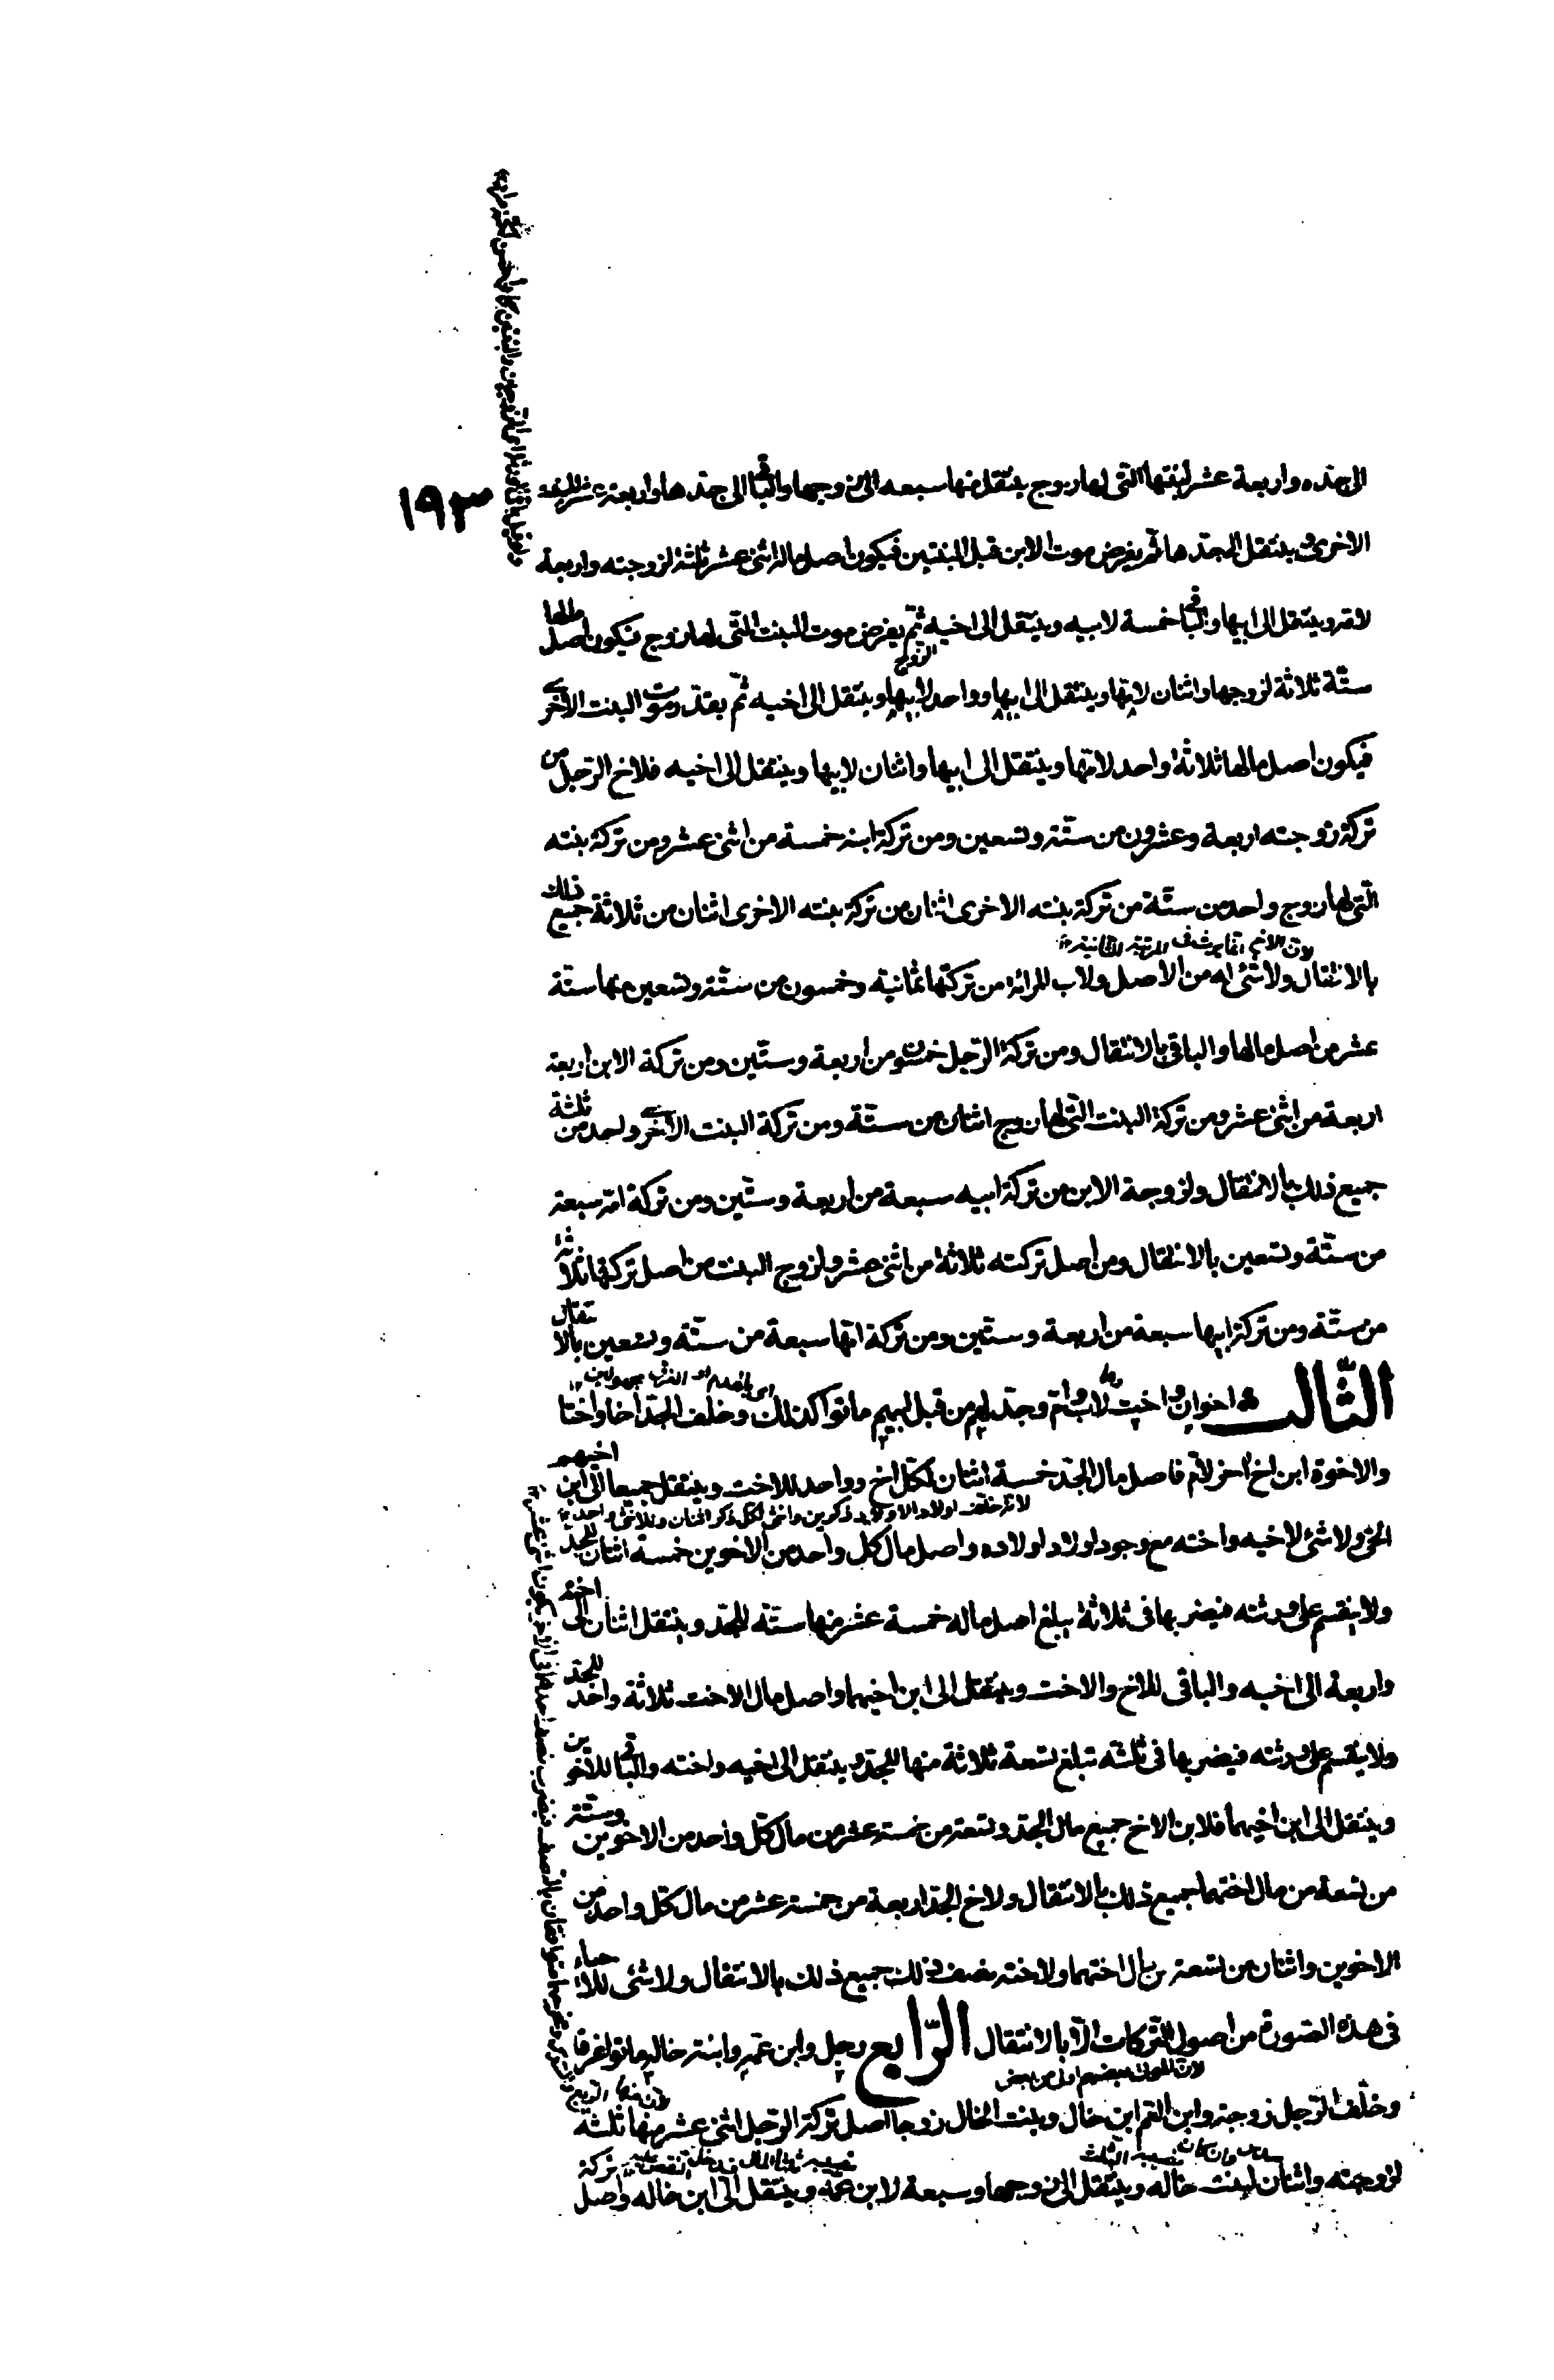 ١٩٣
الى جده واربعة عشر لبنتها التى لها زوج ينتقل منها سبعه الى زوجها والباقى الى جدها واربعة عشر للبنت
الاخرى وينتقل الى جدها ثم يفرض موت الابن قبل البنتين فيكون اصل ماله اثنى عشر ثلثة لزوجته واربعة
لامه وينتقل الى ابيها والباقى خمسة لابيه وينتقل الى اخيه ثم يفرض موت البنت التى لها زوج فيكون اصل مالها
ستّة ثلاثة لزوجها واثنان لامّها وينتقل الى ابيها وواحد لابيها وينتقل الى اخيه ثمّ يقدّر موت البنت الاخرى
فيكون اصل مالها ثلاثة واحد لامّها وينتقل الى ابيها واثنان لابيها وينتقل الى اخيه فلاخ الرّجل من
تركة زوجته اربعة وعشرون من ستّة وتسعين ومن تركة ابنه خمسة من اثنى عشر ومن تركة بنته
التى لها زوج واحد من ستّة من تركة بنته الاخرى اثنان من تركة بنته الاخرى اثنان من ثلاثة جميع ذلك
لان الاخ انما يرث فى المرتبة الثانية
بالانتقال ولا شئ له من الاصل ولاب المرائة من تركتها ثمانية وخمسون من ستّة وتسعين منها ستّة
عشر من اصل مالها والباقى بالانتقال ومن تركة الرّجل خمسون من اربعة وستّين ومن تركة الابن اربعة
اربعة من اثنى عشر ومن تركة البنت التى لها زوج اثنان من ستّة ومن تركة البنت الاخرى واحد من ثلثة
جميع ذلك بالانتقال ولزوجة الابن من تركة ابيه سبعة من اربعة وستّين ومن تركة امّه سبعة
من ستّة وتسعين بالانتقال ومن اصل تركته ثلاثة من اثنى عشر ولزوج البنت من اصل تركتها ثلاثة
من ستّة ومن تركة ابيها سبعة من اربعة وستّين ومن تركة امّها سبعة من ستّة وتسعين بالانتقال
الثّالث اخوان واخت لاب وام وجدّ لهم من قبل ابيهم ماتوا كذلك وخلف الجدّ اخا واختا
والاخوة ابن اخ اخر لام فاصل مال الجدّ خمسة اثنان لكلّ اخ وواحد للاخت وينتقل جميعا الى ابن اخيهم
لانه خلف اولاد الاولاد ذكرين وانثى لكل ذكر اثنان وللانثى واحد
الحى ولا شئ لاخيه واخته مع وجود اولاد اولاده واصل مال كل واحد من الاخوين خمسة اثنان للجدّ
ولا ينقسم على ورثته فيضربها فى ثلاثة يبلغ اصل ماله خمسة عشر منها ستّه للجدّ وينتقل اثنان الى اخته
واربعة الى اخيه والباقى للاخ والاخت وينتقل الى ابن اخيهما واصل مال الاخت ثلاثة واحد للجدّ
ولا ينقسم على ورثته فيضربها فى ثلثة تبلغ تسعة ثلاثة منها للجدّ وينتقل الى اخيه واخته والباقى للاخوين
وينتقل الى ابن اخيهما فلابن الاخ جميع مال الجدّ وتسعة من خمسة عشر من مال كلّ واحد من الاخوين وستّة
من تسعة من مال اختهما جميع ذلك بالانتقال ولاخ الجدّ اربعة من خمسة عشر من مال كلّ واحد من
الاخوين واثنان من تسعة من مال اختهما ولاخته نصف ذلك جميع ذلك بالانتقال ولا شئ للاحياء
فى هذه الصورة من اصول التّركات الّا بالانتقال الرّابع رجل وابن عمّه وابنة خاله ماتوا غرقا
وخلّف الرّجل زوجة وابن العم ابن خال وبنت الخال زوجا اصل تركة الرّجل اثنى عشر منها ثلثة
لزوجته واثنان لبنت خاله وينتقل الى زوجها وسبعة لابن عمّه وينتقل الى ابن خاله واصل تركة